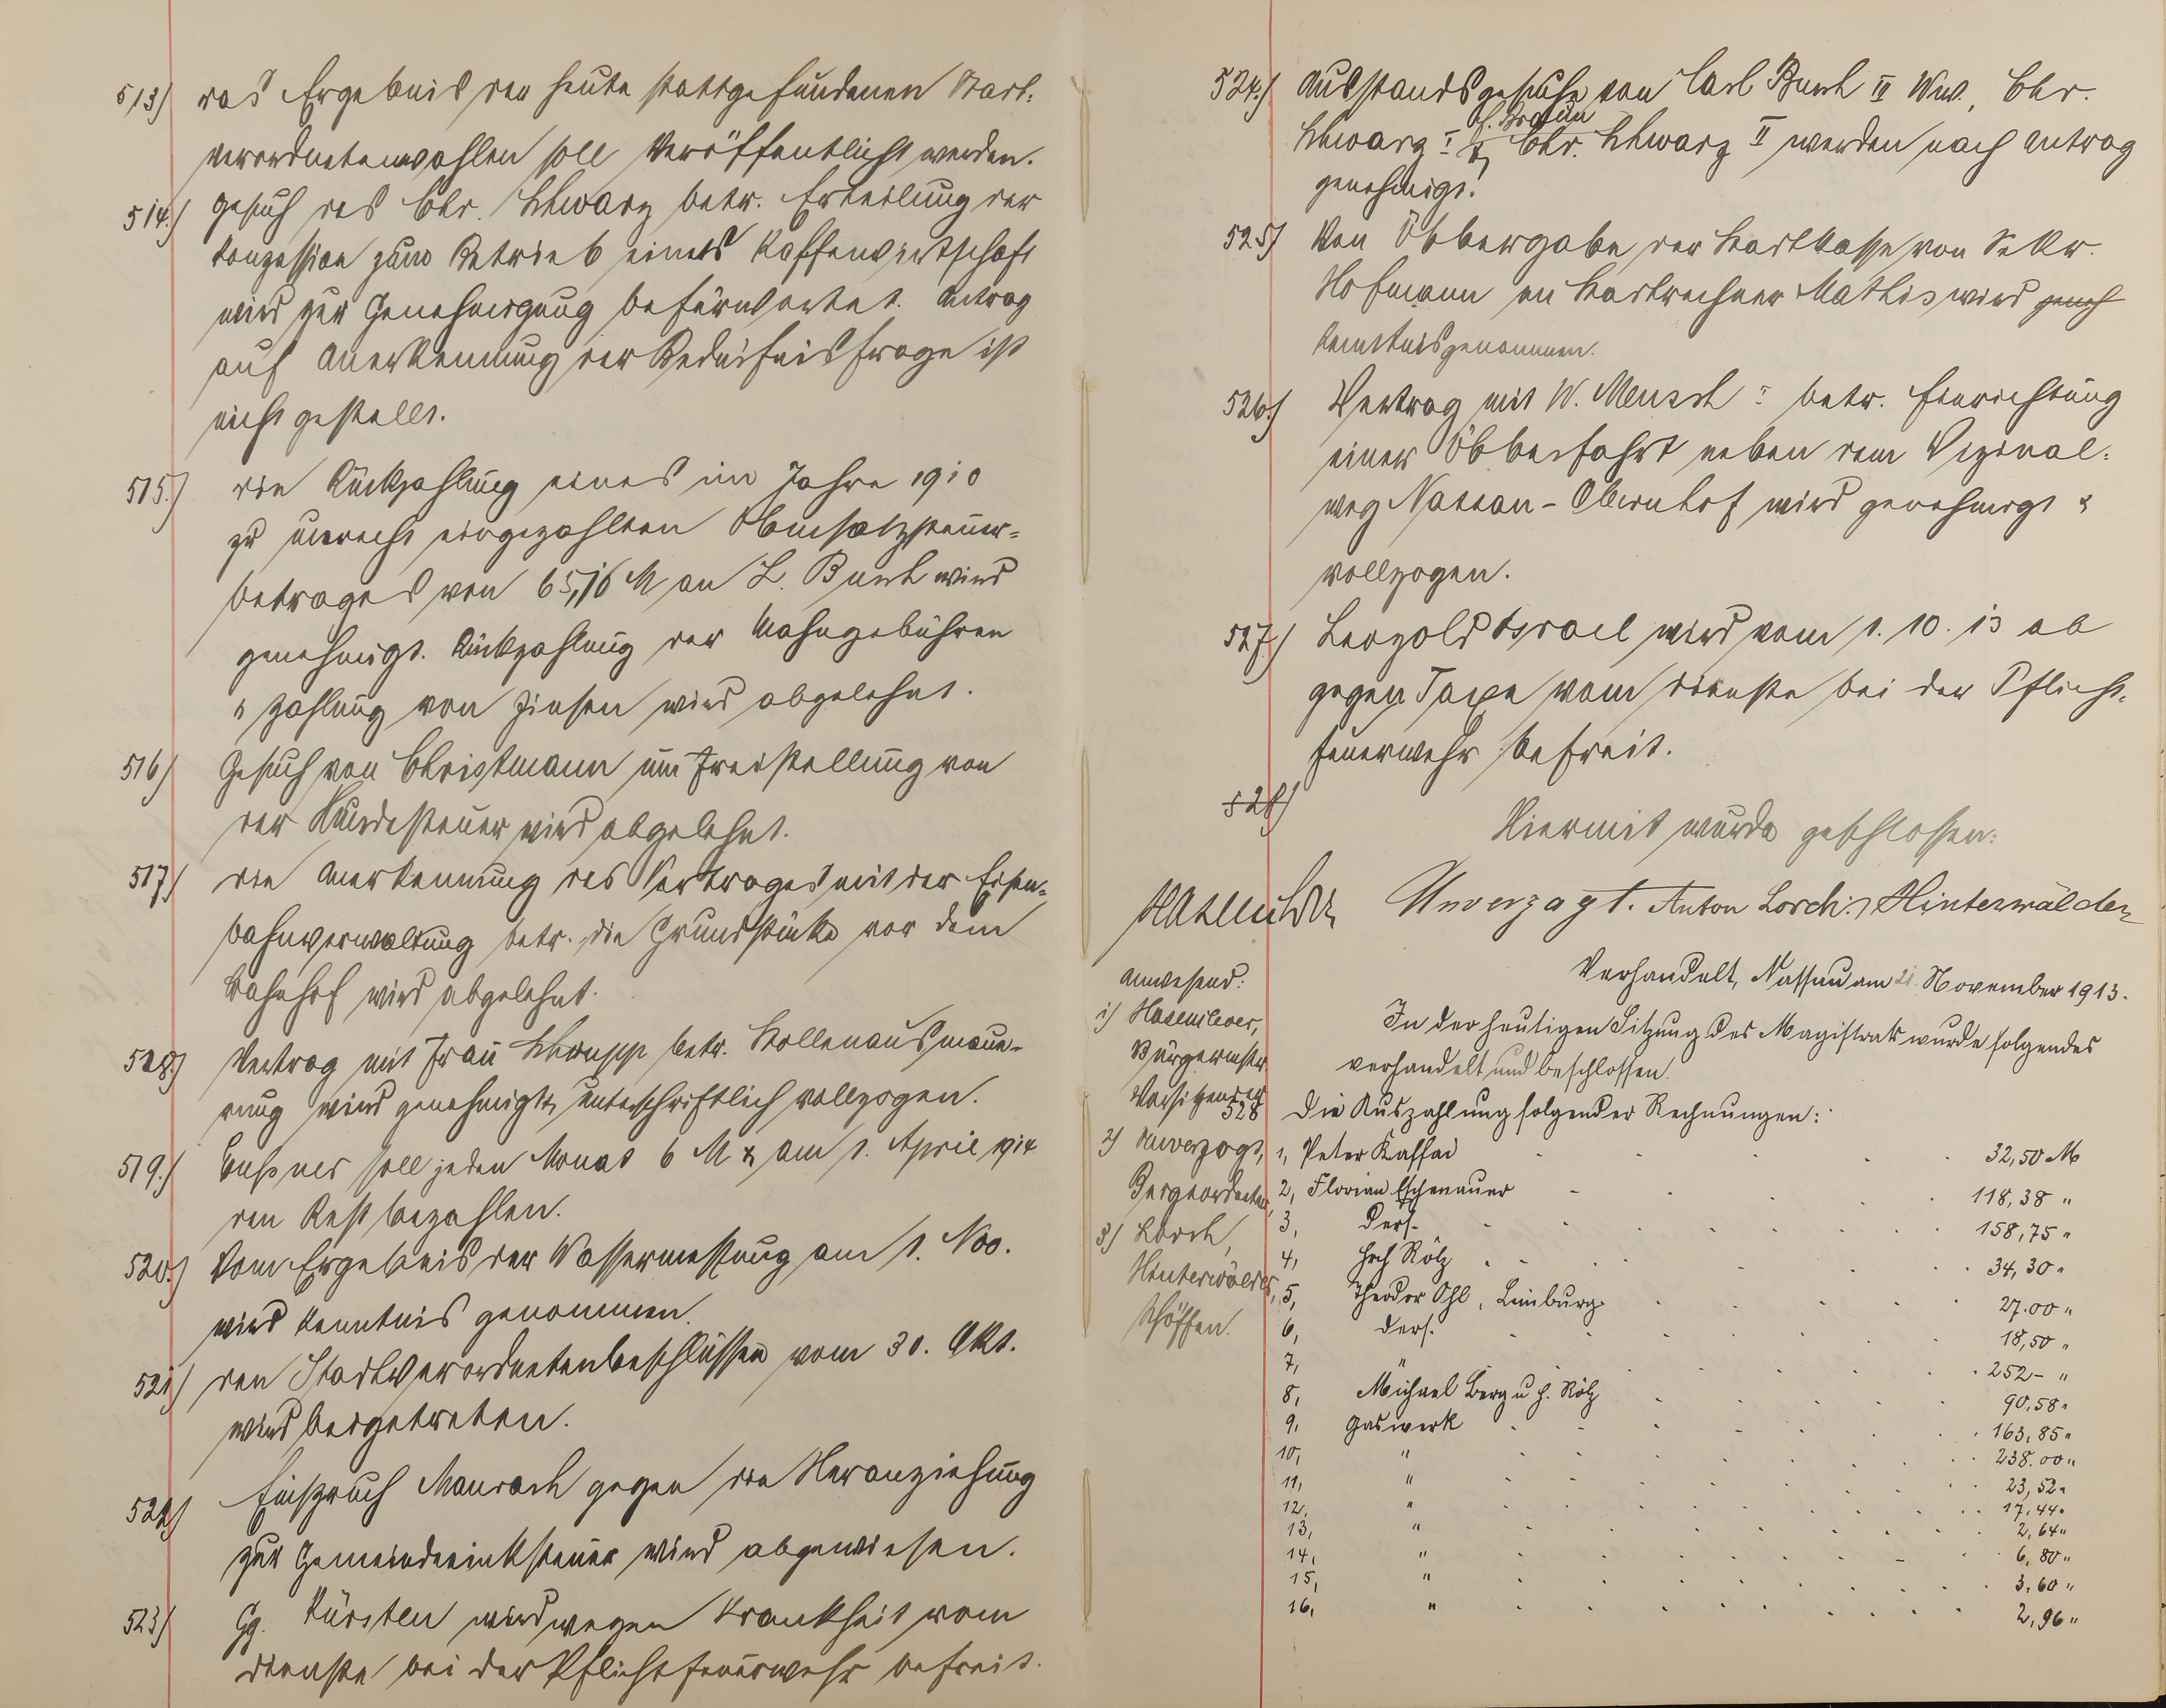 513) Das Ergebnis der heute stattgefundenen Stadt-
verordnetenwahlen soll veröffentlicht werden.
514.) Gesuch des Chr. Schwarz betr. Erteilung der
Konzession zum Betrieb eines Kaffeewirtschaft
wird zur Genehmigung befürwortet. Antrag
auf Anerkennung der Bedürfnisfrage ist
nicht gestellt.
515.) Die Rückzahlung eines im Jahre 1910
zu unrecht eingezahlten Umsatzsteuer-
betrages von 65,16 M an L. Busch wird
genehmigt. Rückzahlung der Mahngebühren
u Zahlung von Zinsen wird abgelehnt.
516) Gesuch von Christmann um Freistellung von
der Hundesteuer wird abgelehnt.
517) Die Anerkennung des Vertrages mit der Eisen-
bahnverwaltung betr. die Grundstücke vor dem
Bahnhof wird abgelehnt.
518) Vertrag mit Frau Schrupp betr. Stollenausmaue-
rung wird genehmigt u unterschriftlich vollzogen.
519.) soll jeden Monat 6 M u am 1. April 1914
den Rest bezahlen.
520.) Vom Ergebnis der Wassermessung am 1. Nov.
wird Kenntnis genommen.
521) Den Stadtverordnetenbeschlüssen vom 30. Okt.
wird beigetreten.
522) Einspruch Maurach gegen die Heranziehung
zur Gemeindeeinksteuer wird abgewiesen.
523) Gg. Kürsten wird wegen Krankheit vom
Dienste bei der Pflichtfeuerwehr befreit.
524.) Ausstandsgesuche von Carl Busch III Ww., Chr.
H. Braun
Schwarz I u Chr. Schwarz II werden nach Antrag
genehmigt.
525) Von Übergabe der Stadtkasse von Sekr.
Hofmann an Stadtrechner Mathis wird
Kenntnis genommen.
526.) Vertrag mit W. Mensch I betr. Einrichtung
einer Überfahrt neben dem Vizinal-
weg Nassau-Obernhof wird genehmigt u
vollzogen.
527.) Leopold Israel wird vom 1. 10. 13 ab
gegen Taxe vom Dienste bei der Pflicht-
feuerwehr befreit.
528)
Hiermit wurde geschlossen:
Hasenclever Unverzagt. Anton Lorch. Hinterwälder
Verhandelt, Nassau am 21. November 1913.
In der heutigen Sitzung des Magistrats wurde folgendes
verhandelt und beschlossen.
Anwesend:
1) Hasenclever,
Bürgermstr.
Vorsitzender
2) Unverzagt,
Beigeordneter,
3) Lorch,
Hinterwälder,
Schöffen.
528 Die Auszahlung folgender Rechnungen:
1, Peter Kaffai 32,50 M
2, Florian Eschenauer 118,38 "
3, Ders. 158,75 "
4, Hrch Rölz 34,30 "
5, Theodor Ohl, Limburg 27.00 "
6, Ders. 18,50 "
7, " 252- "
8, Michael Berg u H. Rölz 90,58 "
9, Gaswerk 163,85 "
10, " 238.00 "
11, " 23,52 "
12, " 17,44 "
13, " 2,64 "
14, " 6,80 "
15, " 3,60 "
16, " 2,96 "